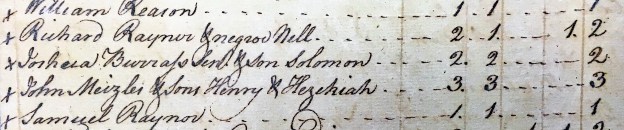 x William Reason 1 1 1
x Richard Raynor & negroe Nell 2 1 1 2
x Joshua Burrass Senr. & son Solomon 2 2 2
x John Meizler & Sons Henry & Hezekiah 3 3 3
x Samuel Raynor 1 1 1